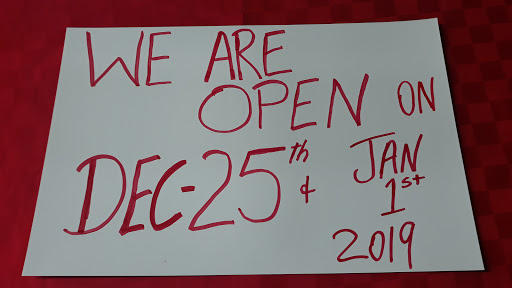 WE ARE
OPEN ON
DEC-25th & JAN
1st
2019